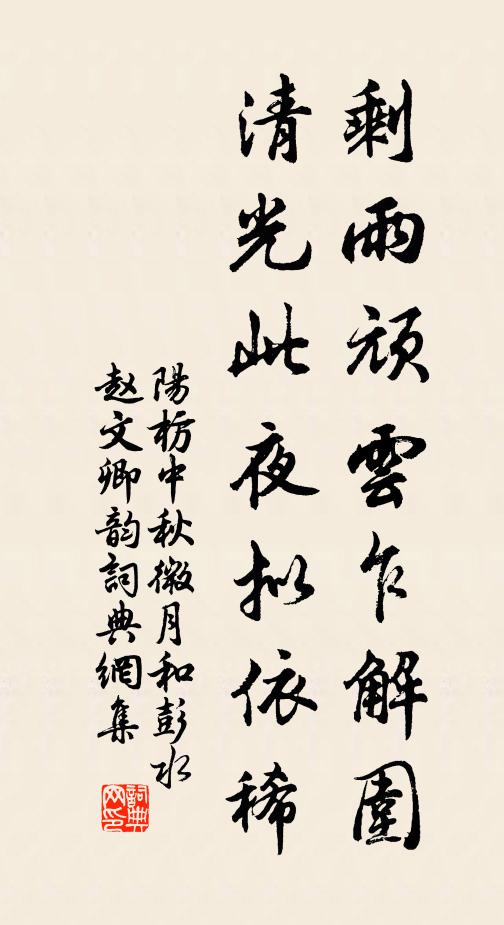 剩雨頑雲乍解圍
清光此夜拟依稀
陽枋中秋微月和彭水
赵文卿韵詞典網集
詞典
网印